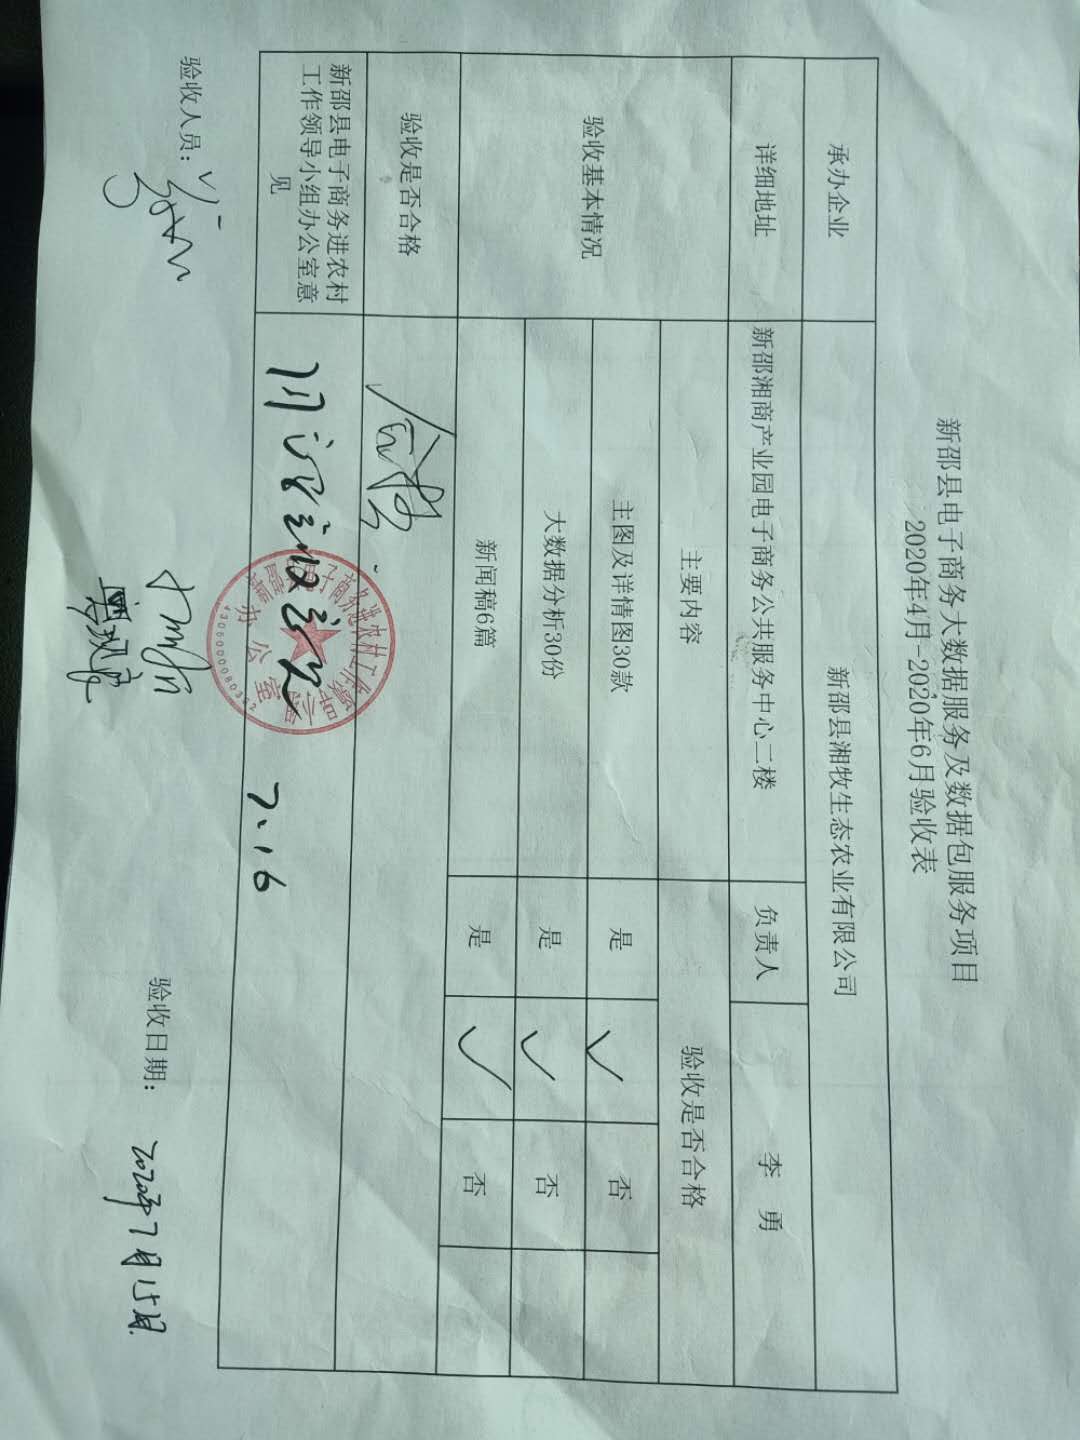 新邵县电子商务大数据服务及数据包服务项目
2020年4月-2020年6月验收表
承办企业 新邵县湘牧生态农业有限公司
详细地址 新邵湘商产业园电子商务公共服务中心二楼 负责人 李 勇
验收基本情况 主要内容 验收是否合格
主图及详情图30款 是 ✓ 否
大数据分析30份 是 ✓ 否
新闻稿6篇 是 ✓ 否
验收是否合格 合格
新邵县电子商务进农村
工作领导小组办公室意
见
同意验收意见
7.16
办公室
验收人员:
验收日期: 2020年7月15日